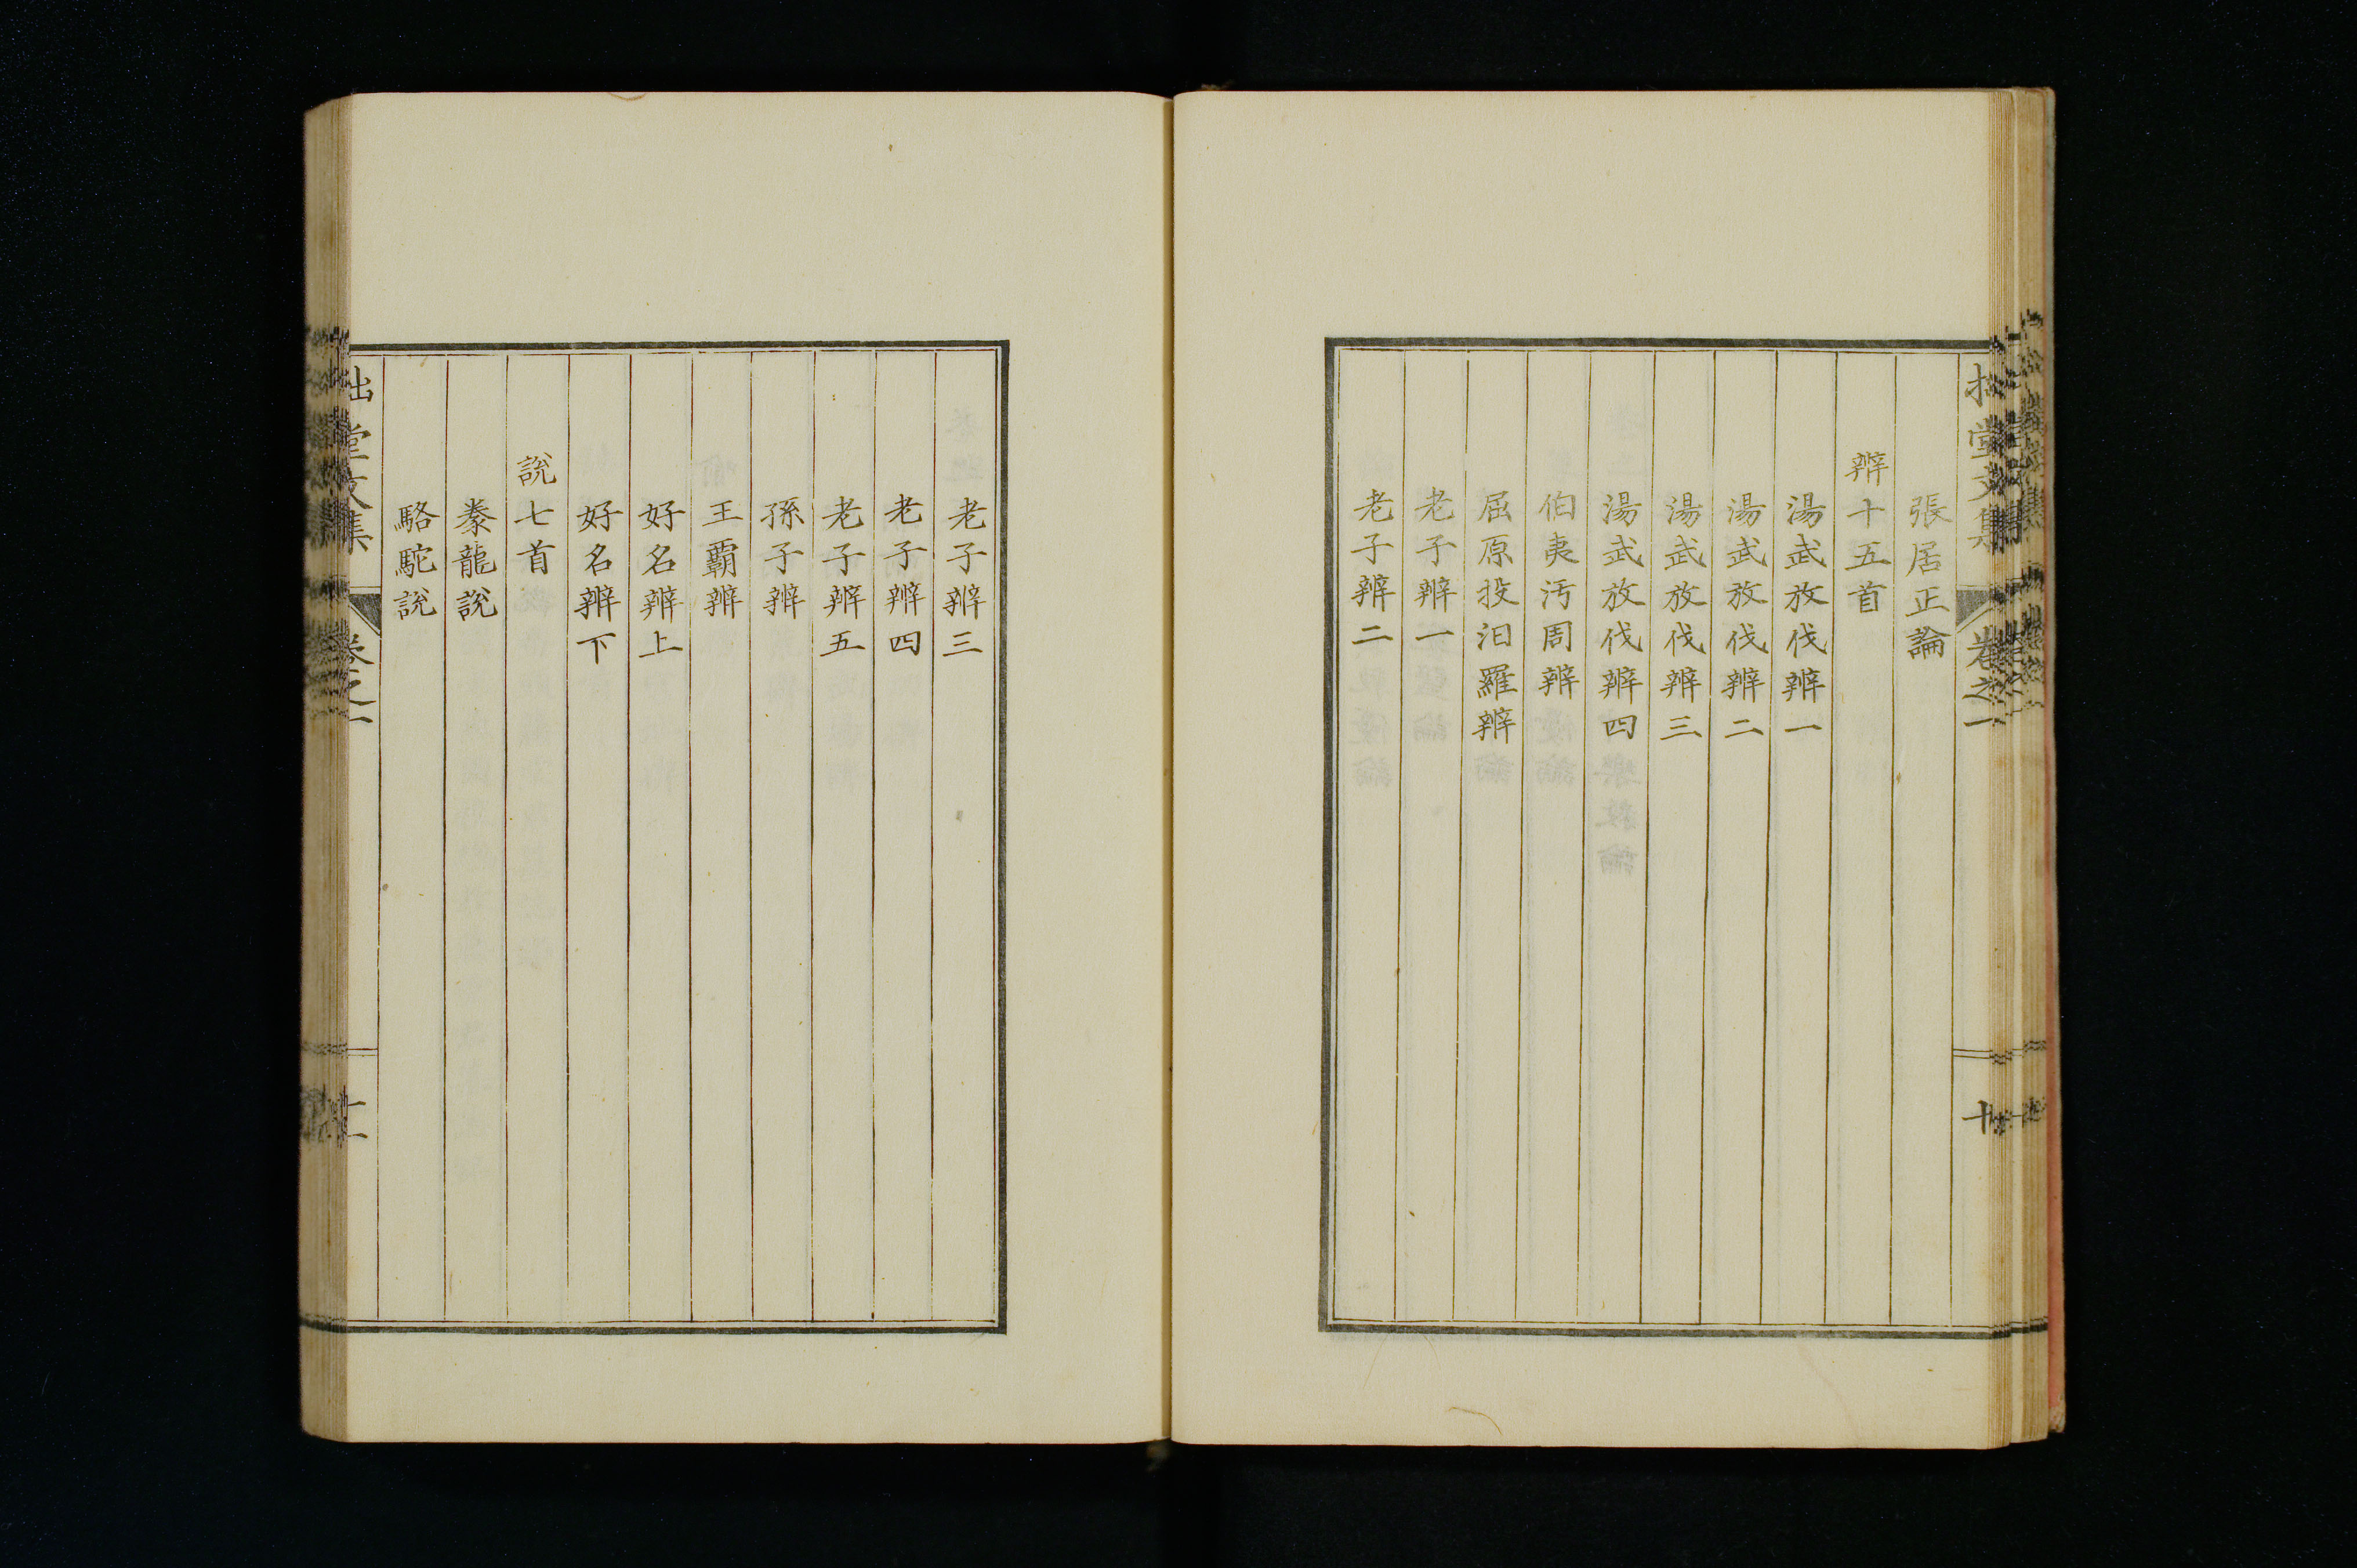 拙堂文集 卷之一 十
張居正論
辨十五首
湯武放伐辨一
湯武放伐辨二
湯武放伐辨三
湯武放伐辨四
伯夷汚周辨
屈原投汨羅辨
老子辨一
老子辨二
老子辨三
老子辨四
老子辨五
孫子辨
王霸辨
好名辨上
好名辨下
說七首
豢龍說
駱駝說
拙堂文集 卷之一